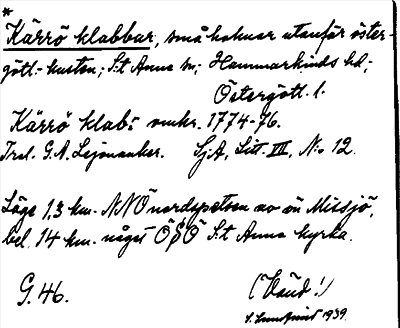 *
Kärrö klabbar, små holmar utanför öster-
götl.-kusten; S:t Anna sn; Hammarkinds hd;
Östergötl. l.
Kärrö klab: omkr. 1774-76.
G. A. Lejonanker. SjA, Litt. III, N:o 12.
Läge 1,3 km. NNÖ nordspetsen av ön Missjö,
bel. 14 km. något ÖSÖ S:t Anna kyrka.
G. 46. (Vänd!)
1939.